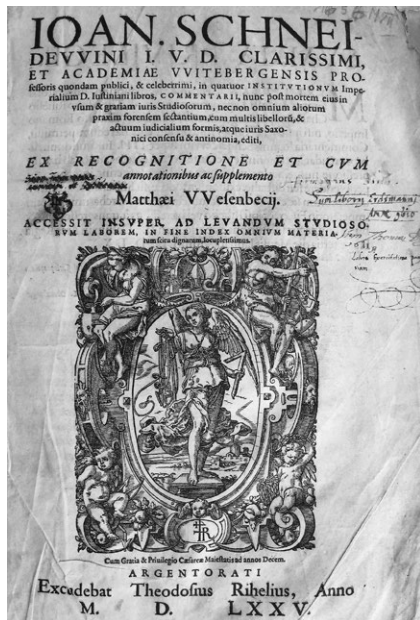 IOAN. SCHNEI-
DEVVINI I. V. D. CLARISSIMI,
ET ACADEMIAE VVITEBERGENSIS PRO-
fessoris quondam publici, & celeberrimi, in quatuor INSTITVTIONVM Impe-
rialium D. Iustiniani libros, COMMENTARII, nunc post mortem eius in
vsum & gratiam iuris Studiosorum, nec non omnium aliorum
praxim forensem sectantium, cum multis libelloru, &
actuum iudicialium formis, atque iuris Saxo-
nici consensu & antinomia, editi,
EX RECOGNITIONE ET CVM
annotationibus ac supplemento
Matthæi VVesenbecij.
ACCESSIT INSVPER AD LEVANDVM STVDIOSO-
RVM LABOREM, IN FINE INDEX OMNIVM MATERIA-
rum scitu dignarum, locupletissimus.
Cum Gratia & Priuilegio Cæsareæ Maiestatis ad annos Decem.
ARGENTORATI
Excudebat Theodosius Rihelius, Anno
M. D. LXXV.